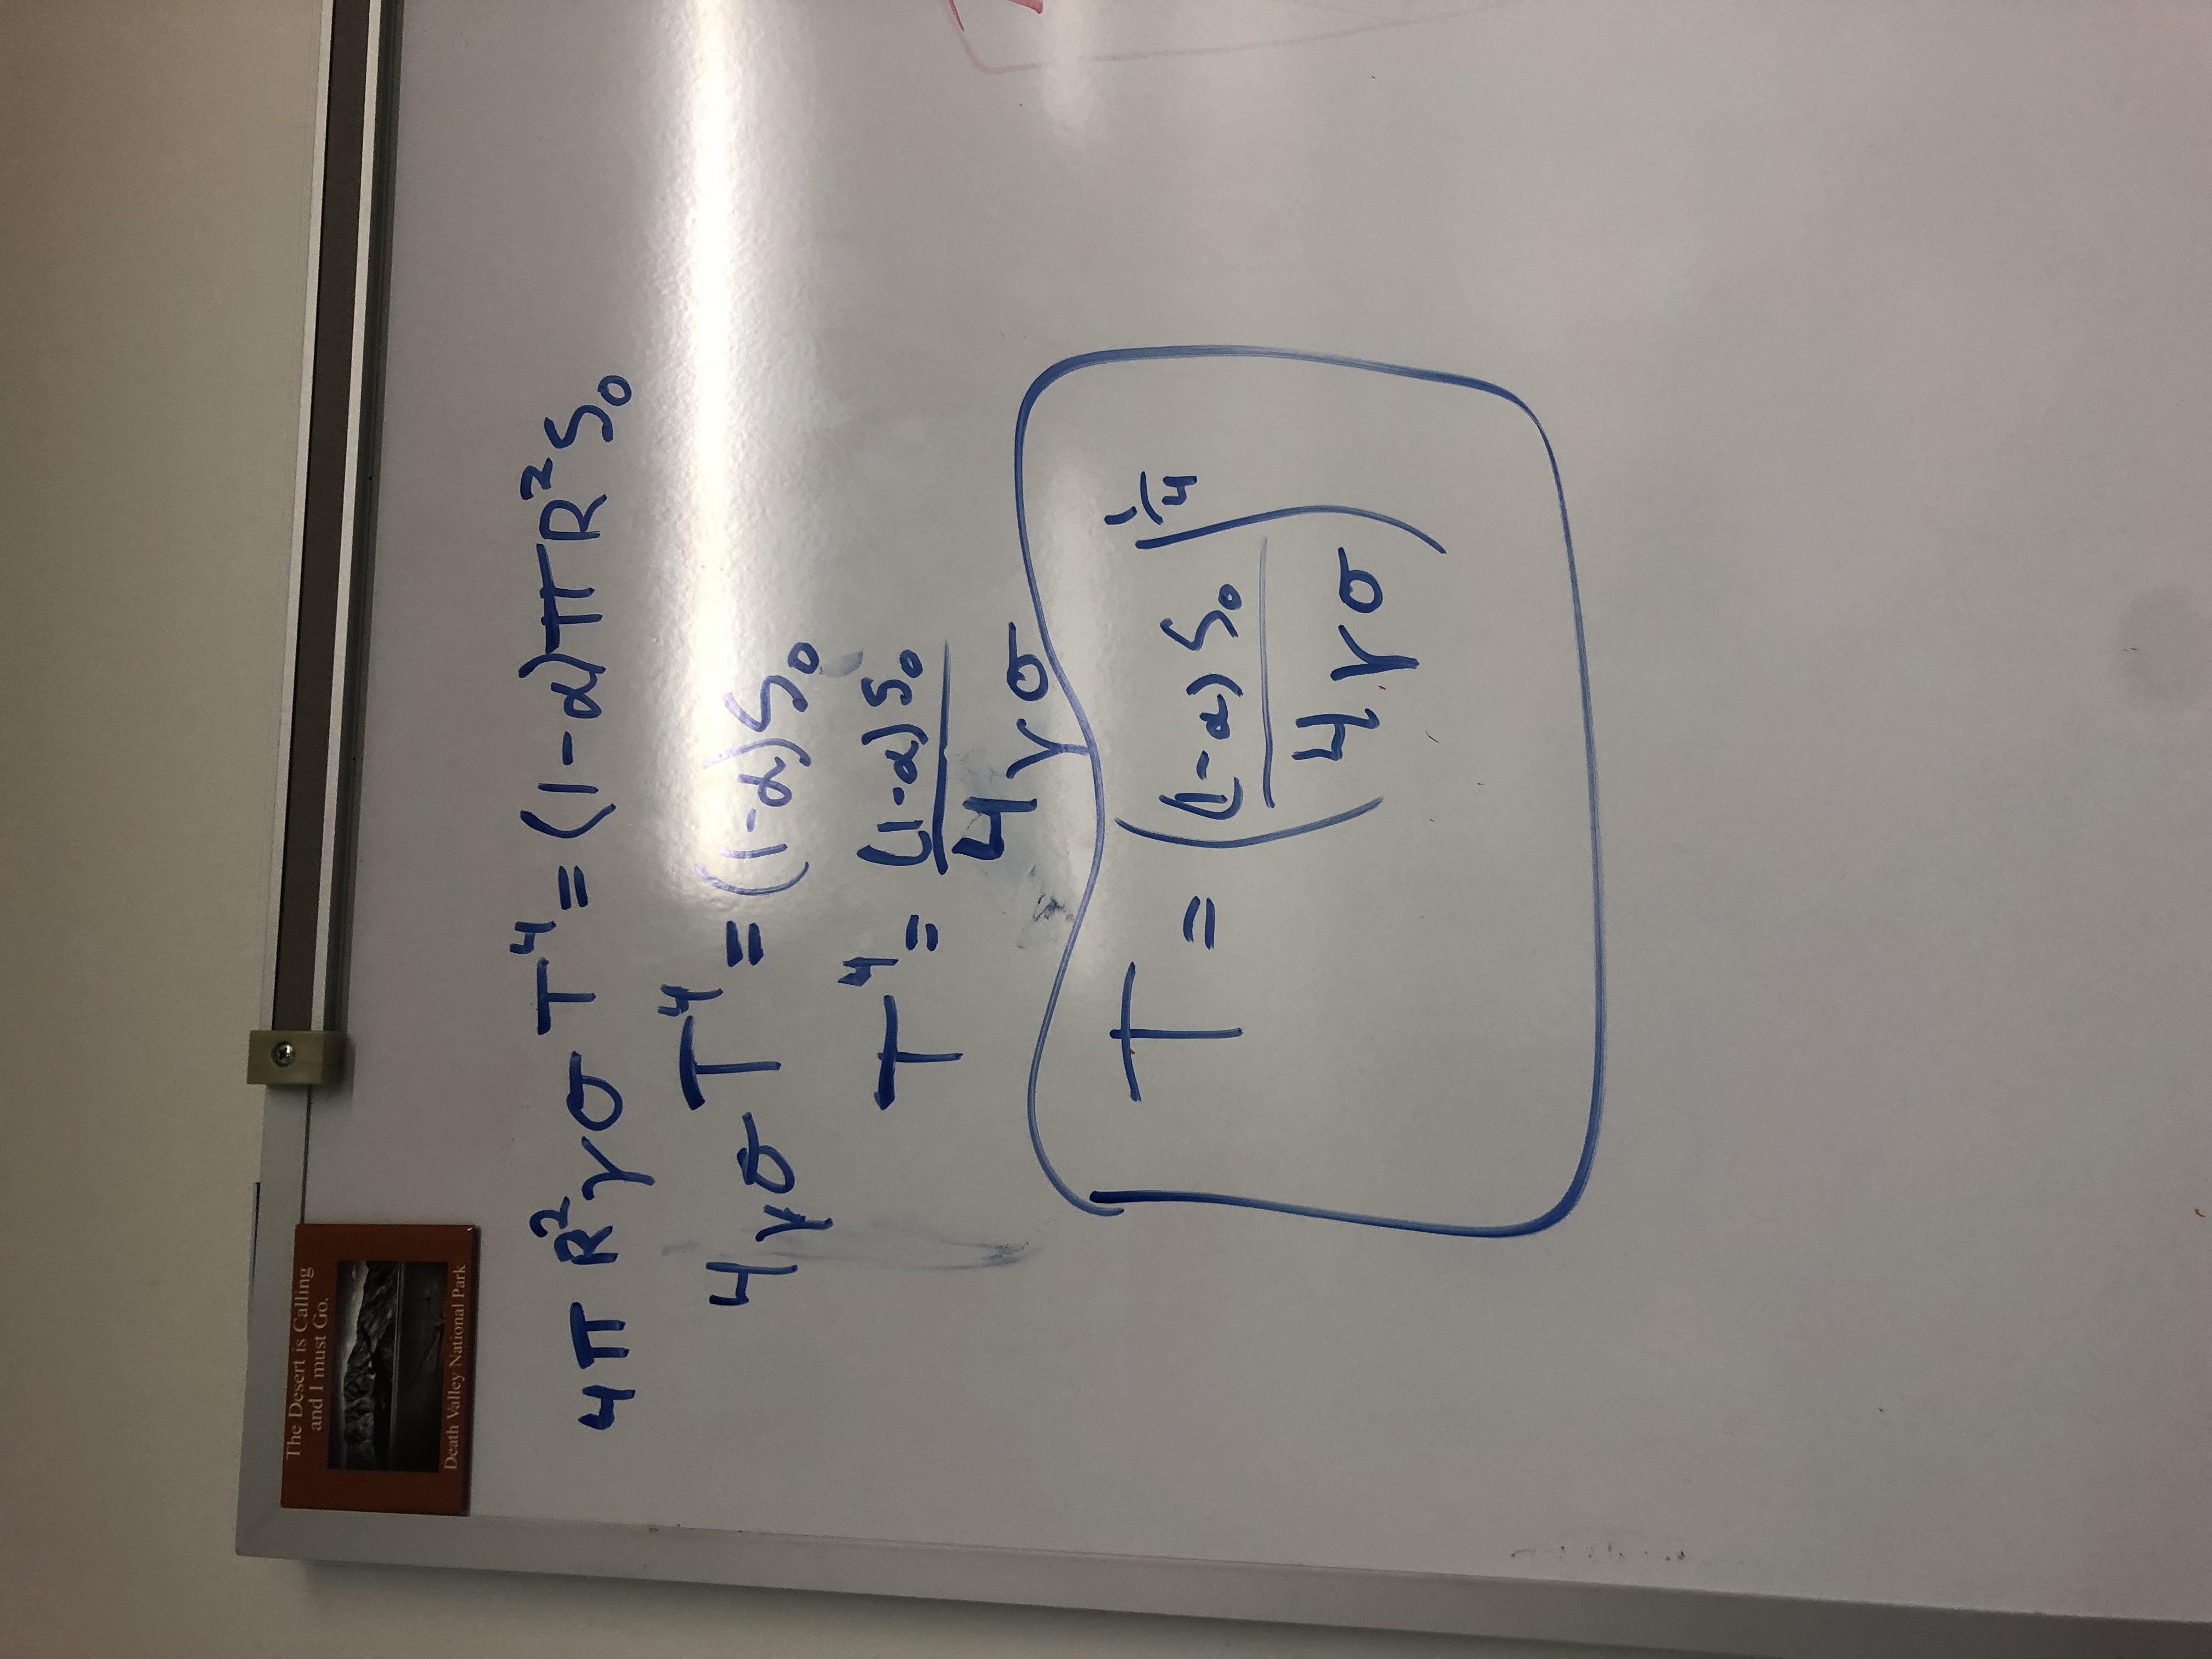 The Desert is Calling
and I must Go.
Death Valley National Park
4π R²γσ T⁴ = (1-α)π R² S₀
4γσ T⁴ = (1-α) S₀
T⁴ = (1-α) S₀ / 4γσ
T = ((1-α) S₀ / 4γσ)^1/4